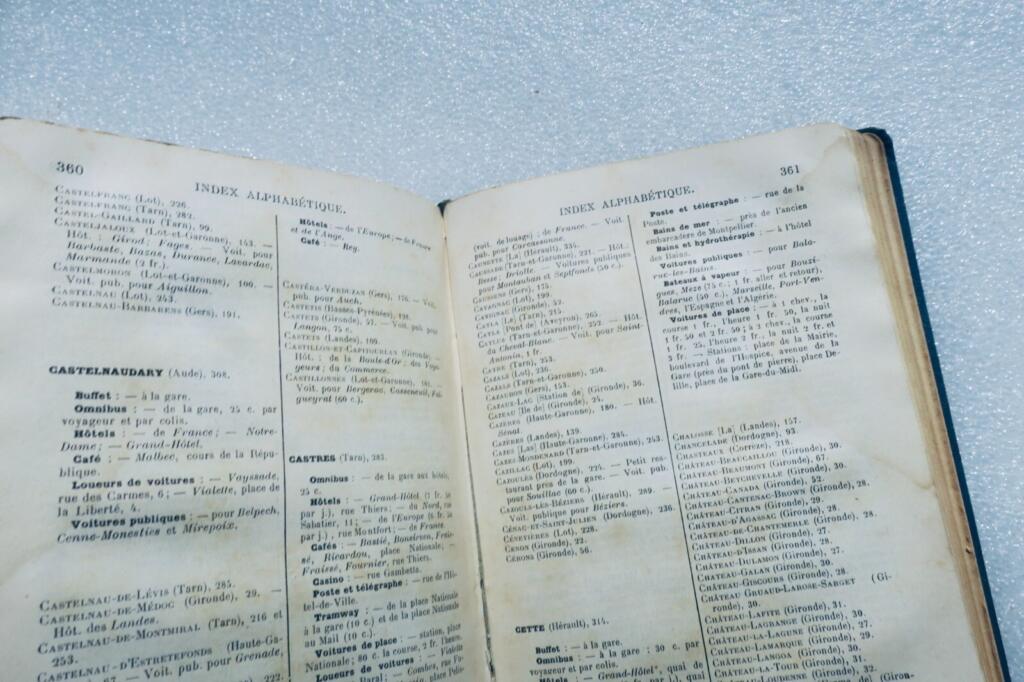 360
INDEX ALPHABÉTIQUE.
CASTELFRANC (Lot), 226.
CASTELFRANC (Tarn), 282.
CASTEL-GAILLARD (Tarn), 99.
CASTELJALOUX (Lot-et-Garonne), 143. —
Hôt. : Girod; Fages. — Voit. pour
Barbaste, Bazas, Durance, Lavardac,
Marmande (2 fr.).
CASTELMORON (Lot-et-Garonne), 100. —
Voit. pub. pour Aiguillon.
CASTELNAU (Lot), 243.
CASTELNAU-BARBARENS (Gers), 191.
CASTELNAUDARY (Aude), 308.
Buffet : — à la gare.
Omnibus : — de la gare, 25 c. par
voyageur et par colis.
Hôtels : — de France; — Notre-
Dame; — Grand-Hôtel.
Café : — Malbec, cours de la Répu-
blique.
Loueurs de voitures : — Vayssade,
rue des Carmes, 6; — Vialette, place de
la Liberté, 4.
Voitures publiques : — pour Belpech,
Cenne-Monestiès et Mirepoix.
CASTELNAU-DE-LÉVIS (Tarn), 285.
CASTELNAU-DE-MÉDOC (Gironde), 29. —
Hôt. des Landes.
CASTELNAU-DE-MONTMIRAL (Tarn), 216 et
253.
CASTELNAU-D'ESTRETEFONDS (Haute-Ga-
67. — Voit. pub. pour Grenade,
222.
Hôtels : — de l'Europe; — de France
et de l'Ange.
Café : — Rey.
CASTÉRA-VERDUZAN (Gers), 176. — Voit.
pub. pour Auch.
CASTETIS (Basses-Pyrénées), 191.
CASTETS (Gironde), 57. — Voit. pub. pour
Langon, 75 c.
CASTETS (Landes), 109.
CASTILLON-ET-CAPITOURLAN (Gironde),
Hôt. : de la Boule-d'Or; des Voya-
geurs; du Commerce.
CASTILLONNÈS (Lot-et-Garonne), 101. —
Voit. pour Bergerac, Casseneuil, Fui-
gueyrat (60 c.).
CASTRES (Tarn), 283.
Omnibus : — de la gare aux hôtels,
25 c.
Hôtels : — Grand-Hôtel (7 fr.
par j.), rue Thiers; — du Nord, rue
Sabatier, 11; — de l'Europe (6 fr.
par j.), rue Montfort; — de France.
Cafés : — Bastié, Bonsirven, Frais-
sé, Ricardou, place Nationale; —
Fraissé, Fournier, rue Thiers.
Casino : — rue Gambetta.
Poste et télégraphe : — rue de l'Hô-
tel-de-Ville.
Tramway : — de la place Nationale
à la gare (10 c.) et de la place Nationale
au Mail (10 c.).
Voitures de place : — station, place
Nationale; 80 c. la course, 2 fr. l'heure.
Loueurs de voitures : — Vialette,
Combes, rue
361
INDEX ALPHABÉTIQUE.
(voit. de louage); de France. — Voit.
pub. pour Carcassonne.
CAUNETTE [La] (Hérault), 334.
CAUSSADE (Tarn-et-Garonne), 221. — Hôt.
Besse; Driolle. — Voitures publiques
pour Montauban et Septfonds (50 c.).
CAUSSENS (Gers), 175.
CAVAGNAC (Lot), 199.
CAVIGNAC (Gironde), 52.
CAYLA [Le] (Tarn), 215.
CAYLA [Pont de] (Aveyron), 265.
CAYLUS (Tarn-et-Garonne), 252. — Hôt.
du Cheval-Blanc. — Voit. pour Saint-
Antonin, 1 fr.
CAYRE (Tarn), 253.
CAZALS (Lot), 236.
CAZALS (Tarn-et-Garonne), 250.
CAZAUBON (Gers), 153.
CAZAUX-LAC [Station de] (Gironde), 36.
CAZEAU [Ile de] (Gironde), 24.
CAZÈRES (Haute-Garonne), 180. — Hôt.
Sénot.
CAZÈRES (Landes), 139.
CAZES [Las] (Haute-Garonne), 284.
CAZES MONDENARD (Tarn-et-Garonne), 243.
CAZILLAC (Lot), 199.
CAZOULÈS (Dordogne), 225. — Petit res-
taurant près de la gare. — Voit. pub.
pour Souillac (60 c.).
CAZOULS-LÈS-BÉZIERS (Hérault), 289. —
Voit. publique pour Béziers.
CÉNAC-ET-SAINT-JULIEN (Dordogne), 236.
CÉNEVIÈRES (Lot), 228.
CENON (Gironde), 22.
CÉRONS (Gironde), 56.
CETTE (Hérault), 314.
Buffet : — à la gare.
Omnibus : — à la gare; 30 c. par
voyageur et par colis.
Hôtels : — Grand-Hôtel*, quai de
Poste et télégraphe : — rue de la
Poste.
Bains de mer : — près de l'ancien
embarcadère de Montpellier.
Bains et hydrothérapie : — à l'hôtel
des Bains.
Voitures publiques : — pour Bala-
ruc-les-Bains.
Bateaux à vapeur : — pour Bouzi-
gues, Mèze (75 c.; 1 fr. aller et retour),
Balaruc (50 c.), Marseille, Port-Ven-
dres, l'Espagne et l'Algérie.
Voitures de place : — à 1 chev., la
course 1 fr., l'heure 1 fr. 50, la nuit
1 fr. 50 et 2 fr. 50; à 2 chev., la course
1 fr. 25, l'heure 2 fr., la nuit 2 fr. et
3 fr. — Stations : place de la Mairie,
boulevard de l'Hospice, avenue de la
Gare (près du pont de pierre), place De-
lille, place de la Gare-du-Midi.
CHALOSSE [La] (Landes), 157.
CHANCELADE (Dordogne), 93.
CHASTEAUX (Corrèze), 218.
CHÂTEAU-BEAUCAILLOU (Gironde), 30.
CHÂTEAU-BEAUMONT (Gironde), 67.
CHÂTEAU-BEYCHEVELLE (Gironde), 30.
CHÂTEAU-CANADA (Gironde), 52.
CHÂTEAU-CANTENAC-BROWN (Gironde), 28.
CHÂTEAU-CITRAN (Gironde), 29.
CHÂTEAU-D'AGASSAC (Gironde), 28.
CHÂTEAU-DE-CHANTEMERLE (Gironde), 28.
CHÂTEAU-DILLON (Gironde), 27.
CHÂTEAU-D'ISSAN (Gironde), 28.
CHÂTEAU-DULAMON (Gironde), 27.
CHÂTEAU-GALAN (Gironde), 30.
CHÂTEAU-GISCOURS (Gironde), 28.
CHÂTEAU GRUAUD-LAROSE-SARGET (Gi-
ronde), 30.
CHÂTEAU-LAFITE (Gironde), 31.
CHÂTEAU-LAGRANGE (Gironde), 30.
CHÂTEAU-LA-LAGUNE (Gironde), 27.
CHÂTEAU-LAMARQUE (Gironde), 29.
CHÂTEAU-LANGOA (Gironde), 30.
CHÂTEAU-LA-TOUR (Gironde), 31.
CHÂTEAU-LOUDENNE (Gironde), 32.